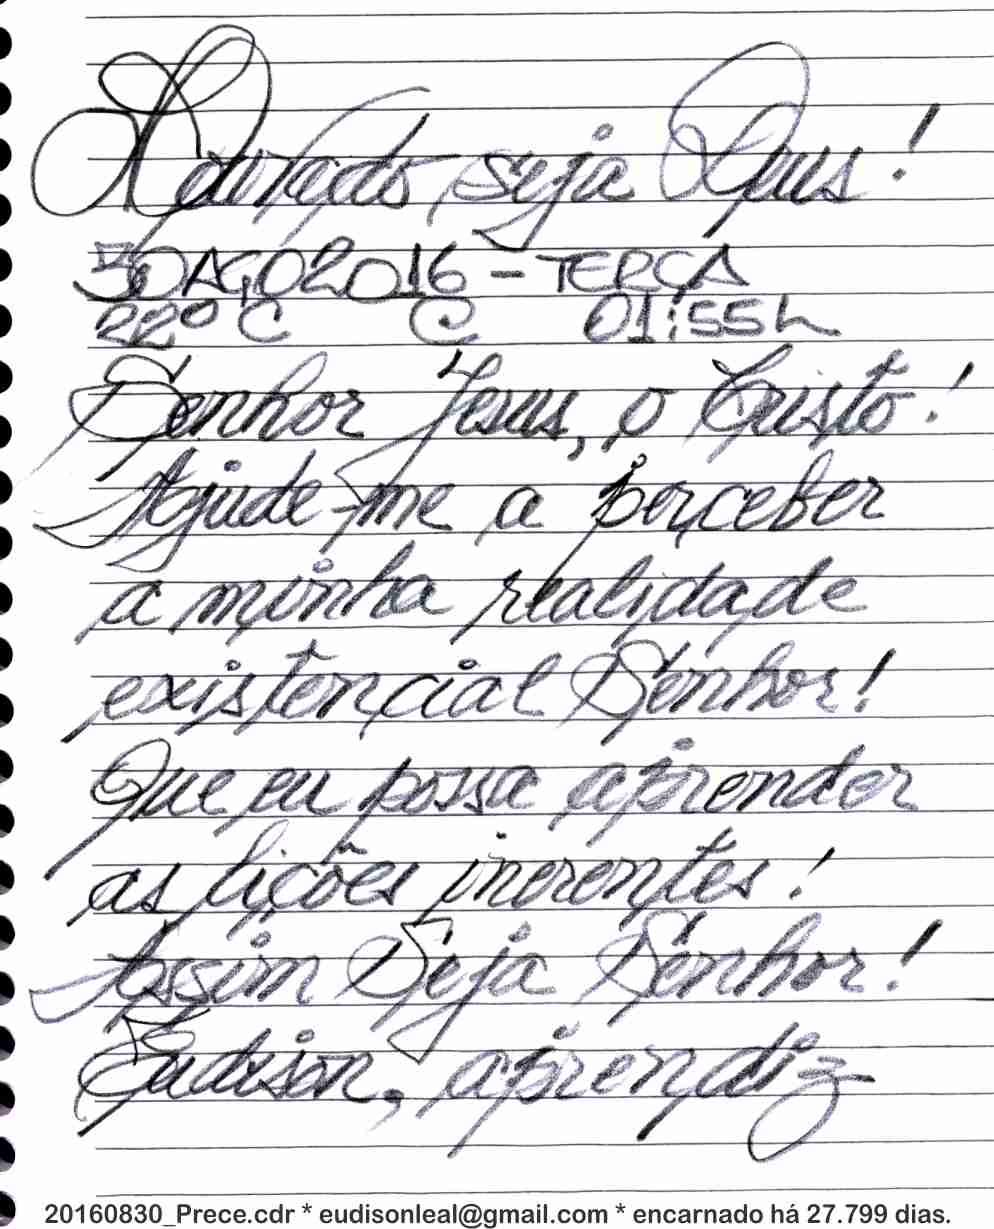 Louvado seja Deus!
30AGO2016 - TERÇA
22º C C 01:55h
Senhor Jesus, o Cristo!
Ajude-me a perceber
a minha realidade
existencial Senhor!
Que eu possa aprender
as lições inerentes!
Assim Seja Senhor!
Eudison, aprendiz
20160830_Prece.cdr * eudisonleal@gmail.com * encarnado há 27.799 dias.